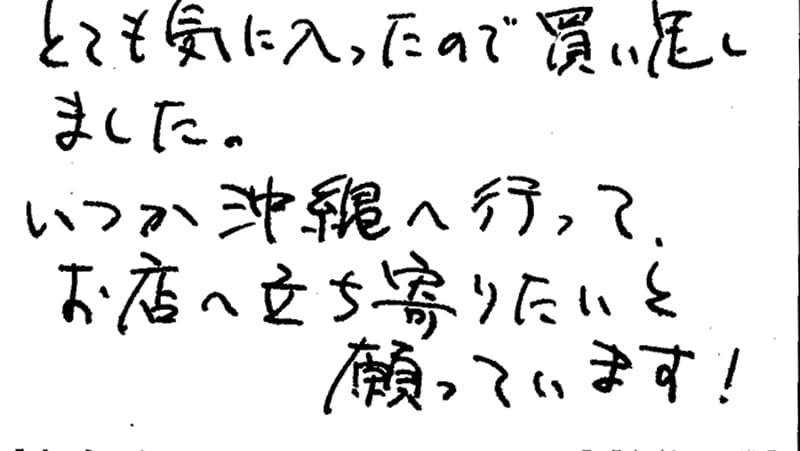 とても気に入ったので買い足し
ました。
いつか沖縄へ行って、
お店へ立ち寄りたいと
願っています!